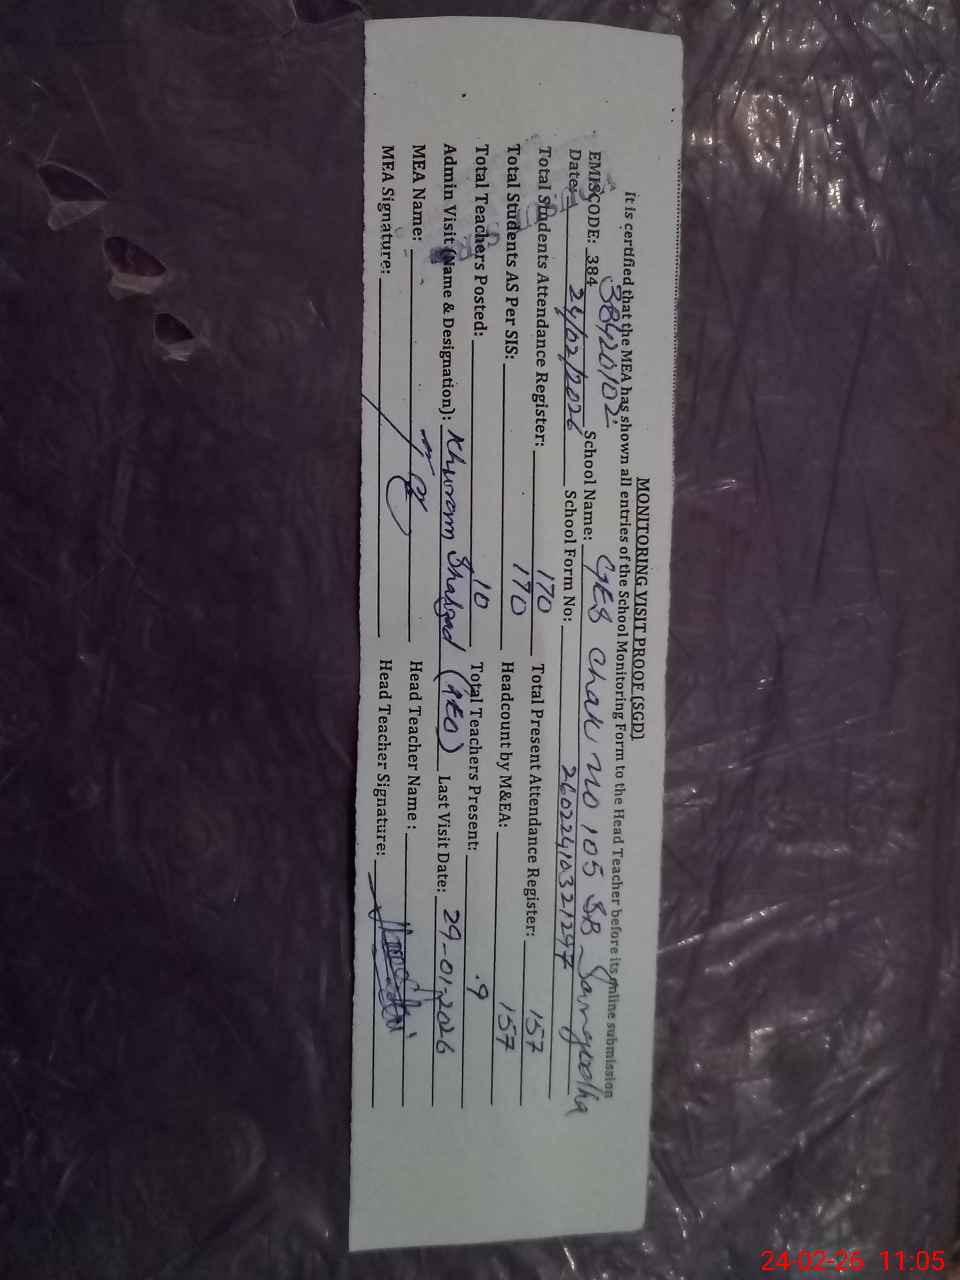 MONITORING VISIT PROOF (SGD)
it is certified that the MEA has shown all entries of the School Monitoring Form to the Head Teacher before its online submission
EMISCODE: 384 38420102 School Name: GES Chak no 105 SB Sargodha
Date: 24/02/2026 School Form No: 26022410321297
Total Students Attendance Register: 170 Total Present Attendance Register: 157
Total Students AS Per SIS: 170 Headcount by M&EA: 157
Total Teachers Posted: 10 Total Teachers Present: 9
Admin Visit (Name & Designation): Khurram Shahzad (AEO) Last Visit Date: 29-01-2026
MEA Name: Head Teacher Name:
MEA Signature: Head Teacher Signature:
24-02-26 11:05